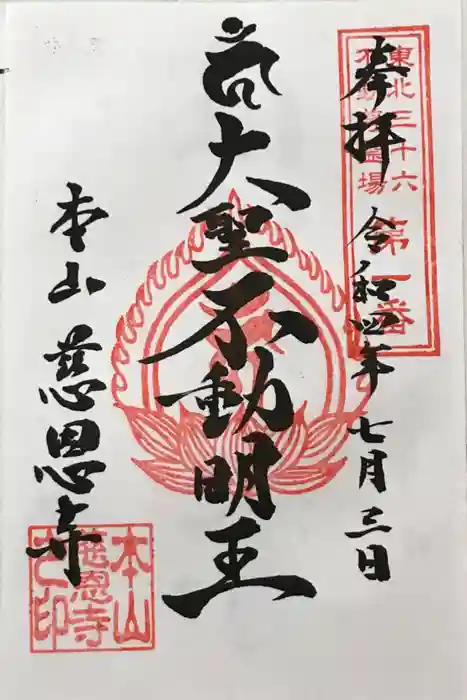 奉拝
令和四年七月三日
東北三十六
不動尊霊場
第一番
大聖不動明王
本山 慈恩寺
本山
慈恩寺
之印